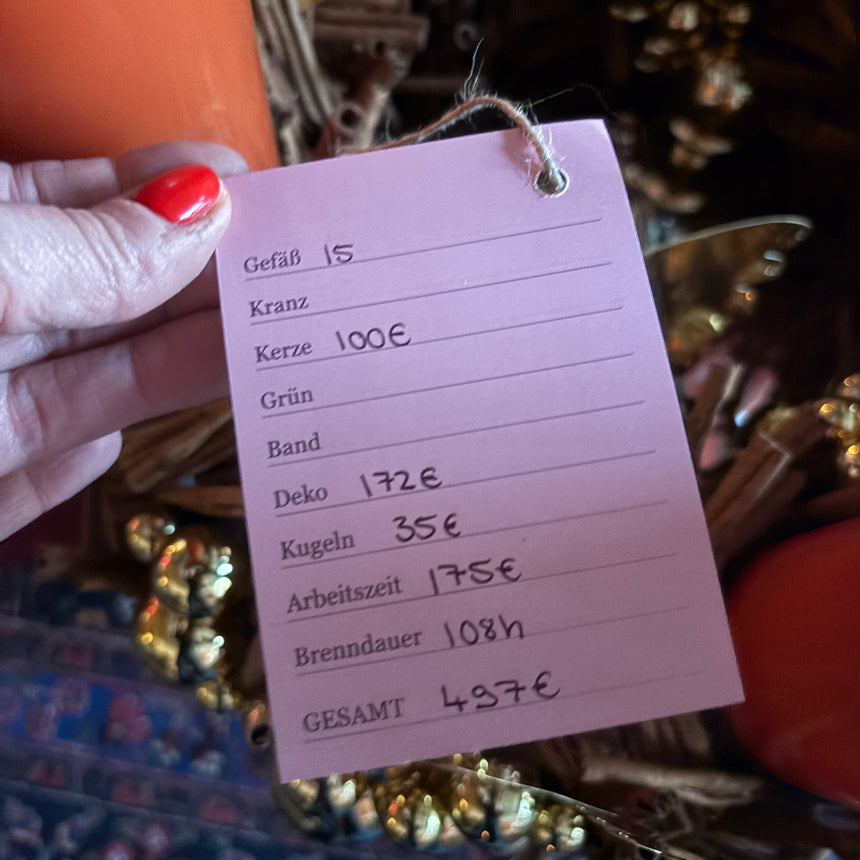 Gefäß 15
Kranz
Kerze 100€
Grün
Band
Deko 172€
Kugeln 35€
Arbeitszeit 175€
Brenndauer 108h
GESAMT 497€